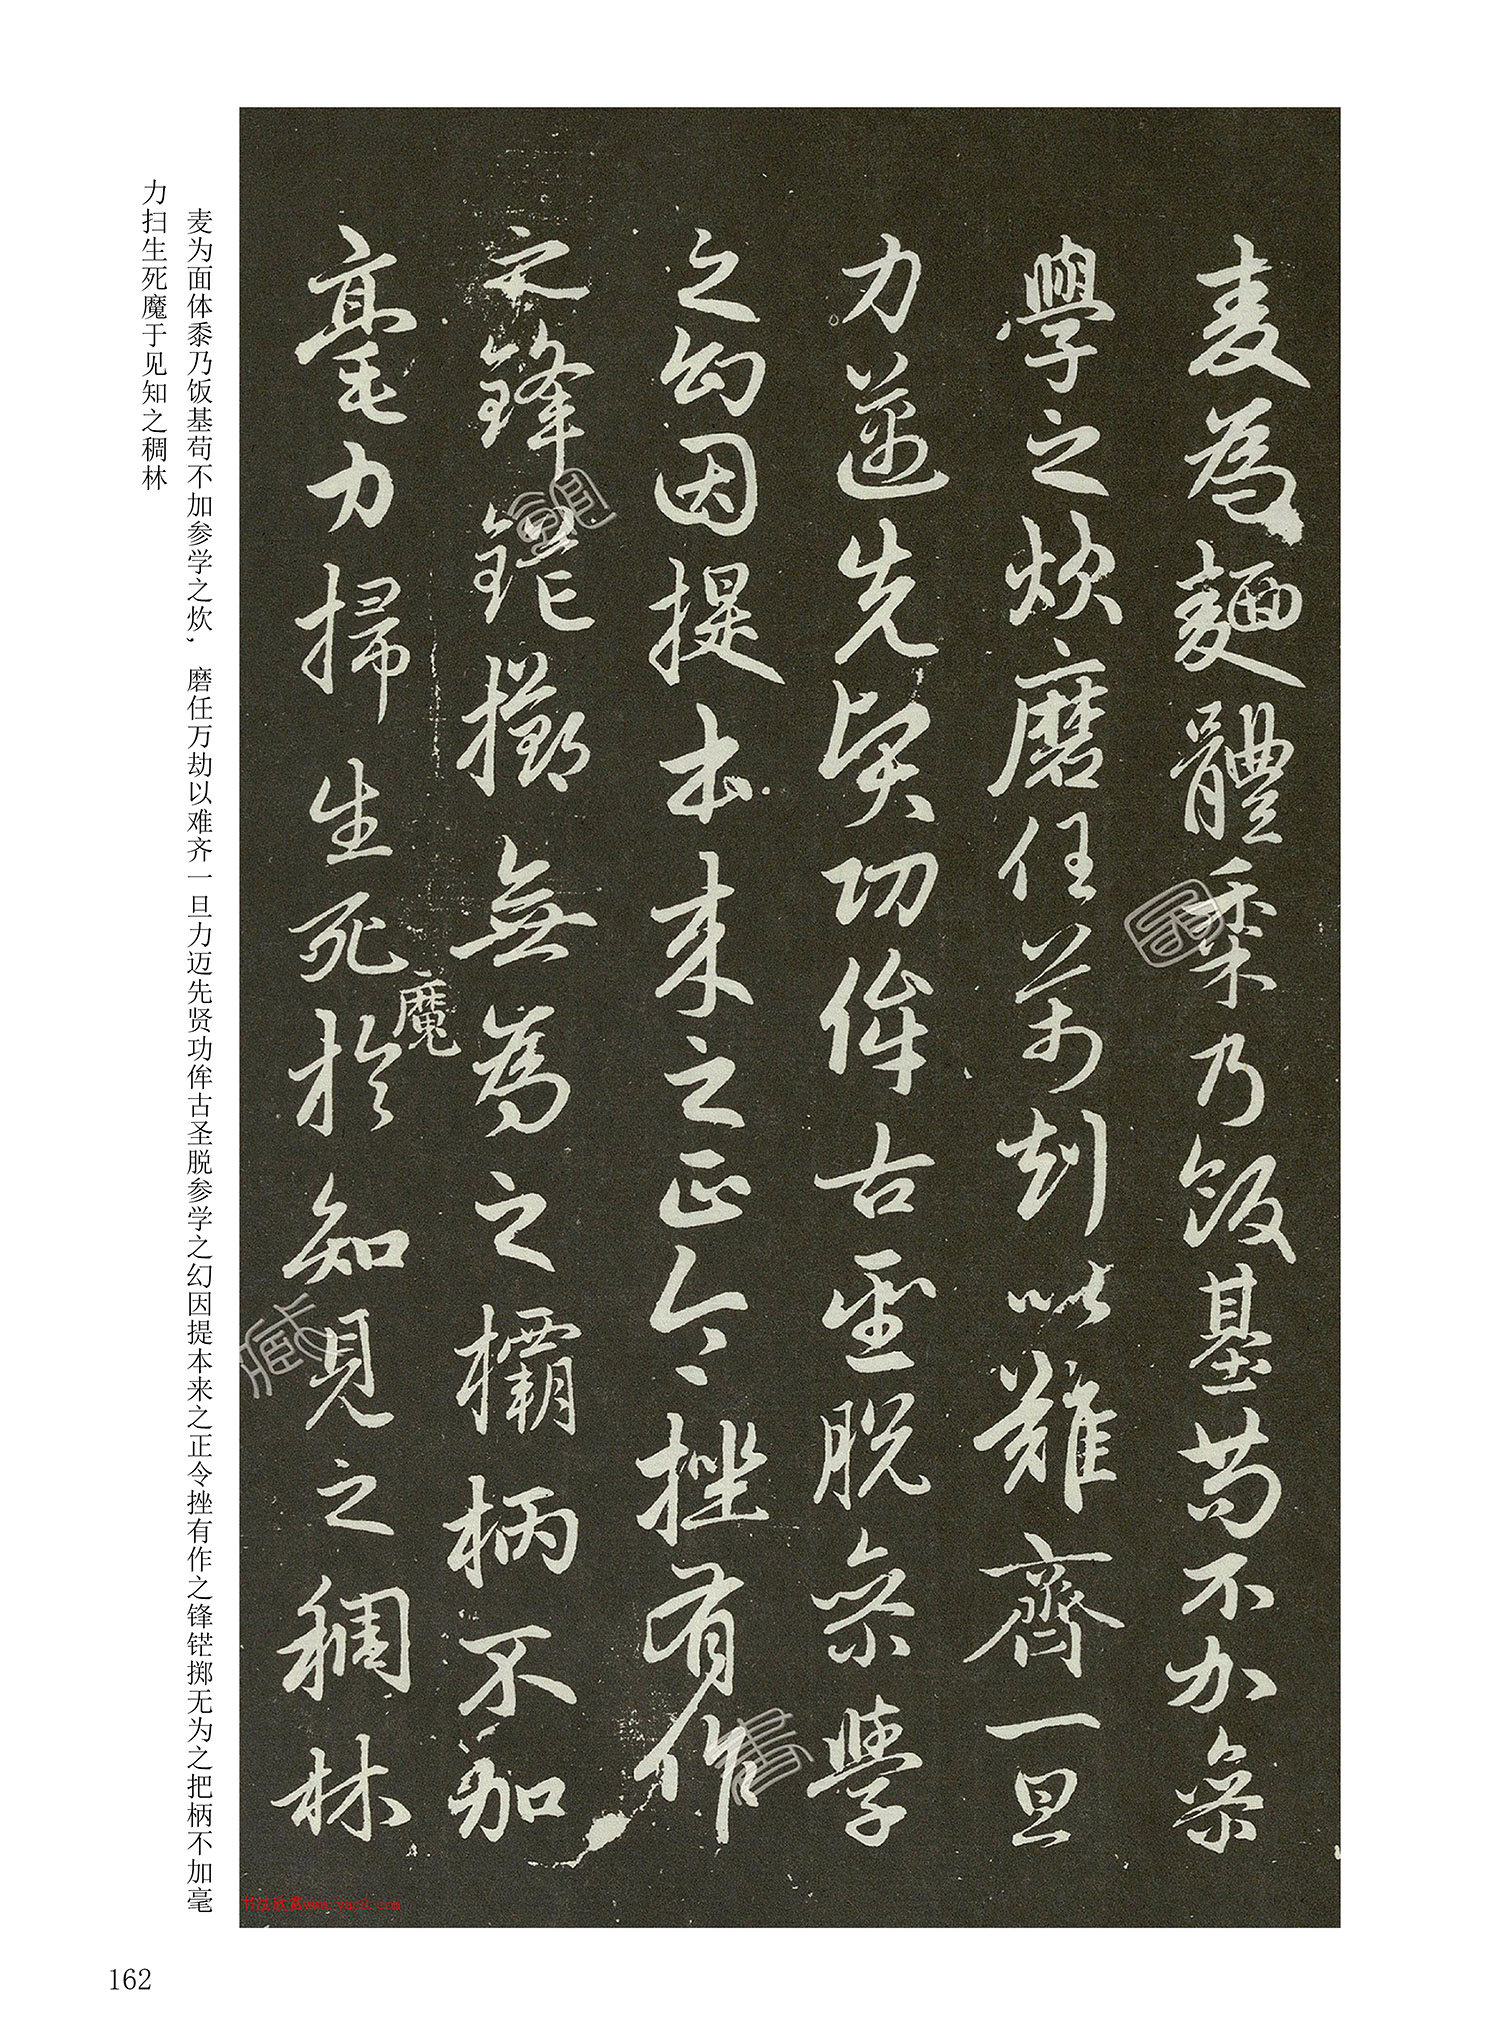 麦為麵體黍乃飯基苟不加叅
學之炊磨任萬劫以難齊一旦
力邁先賢功侔古聖脱叅學
之幻因提本来之正令挫有作
之鋒鋩擲無為之欛柄不加
毫力掃生死於知見之稠林
魔
麦为面体黍乃饭基苟不加参学之炊，磨任万劫以难齐一旦力迈先贤功侔古圣脱参学之幻因提本来之正令挫有作之锋铓掷无为之把柄不加毫
力扫生死魔于见知之稠林
162